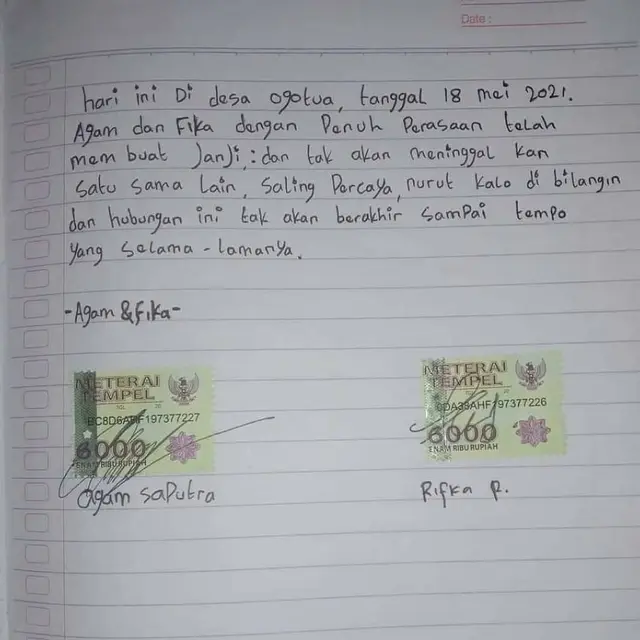 Date :
hari ini Di desa ogotua, tanggal 18 mei 2021.
Agam dan Fika dengan Penuh Perasaan telah
mem buat JanJi, : dan tak akan meninggal kan
satu sama lain, saling Percaya, nurut kalo di bilangin
dan hubungan ini tak akan berakhir samPai tempo
yang selama - lamanya.
-Agam & Fika-
METERAI
TEMPEL
197377227
6000
ENAM RIBU RUPIAH
Agam saPutra
METERAI
TEMPEL
197377226
6000
ENAM RIBU RUPIAH
Rifka R.